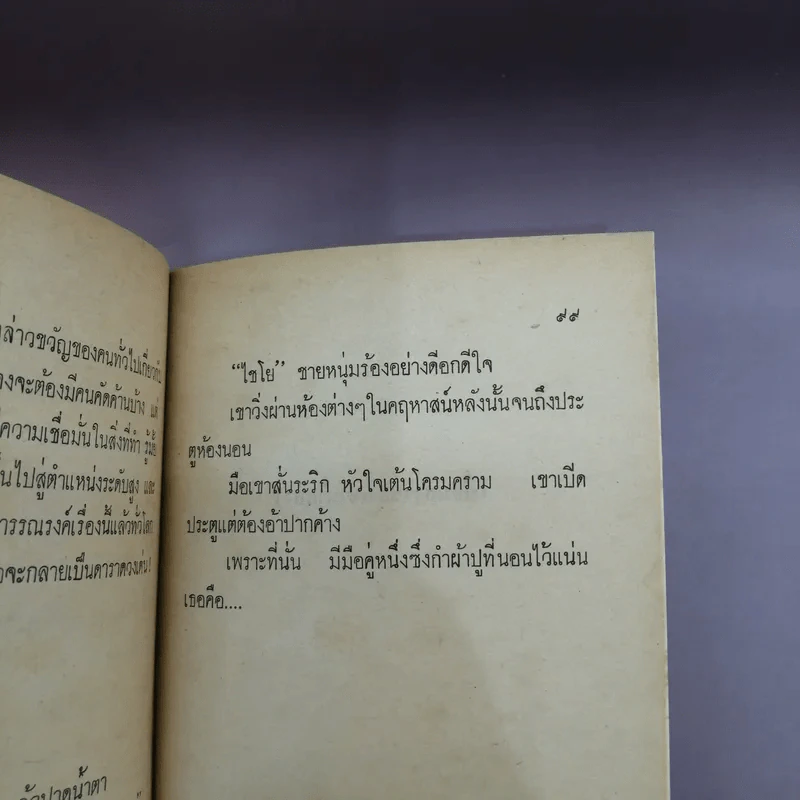 ล่าวขวัญของคนทั่วไปเกี่ยวกับ
งจะต้องมีคนคัดค้านบ้าง แต่
ความเชื่อมั่นในสิ่งที่ทำ
นไปสู่ตำแหน่งระดับสูง และ
ารรณรงค์เรื่องนี้แล้วทั่วโลก
จะกลายเป็นดาราดวงเด่น!
น้ำตา
๙๙
“ไชโย” ชายหนุ่มร้องอย่างดีอกดีใจ
เขาวิ่งผ่านห้องต่างๆในคฤหาสน์หลังนั้นจนถึงประ
ตูห้องนอน
มือเขาสั่นระริก หัวใจเต้นโครมคราม เขาเปิด
ประตูแต่ต้องอ้าปากค้าง
เพราะที่นั่น มีมือคู่หนึ่งซึ่งกำผ้าปูที่นอนไว้แน่น
เธอคือ....